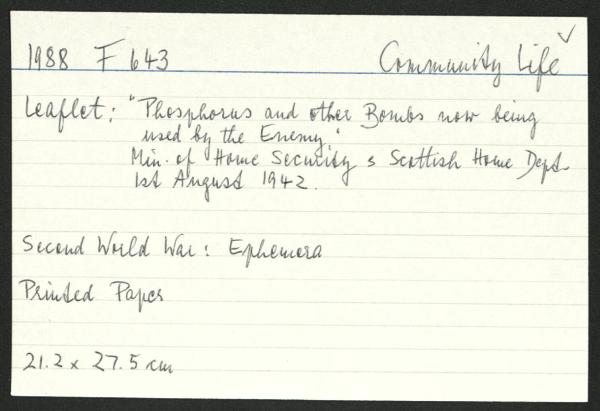 1988 F 643 Community Life ✓
Leaflet: "Phosphorus and other Bombs now being
used by the Enemy"
Min. of Home Security & Scottish Home Dept.
1st August 1942.
Second World War: Ephemera
Printed Paper
21.2 x 27.5 cm